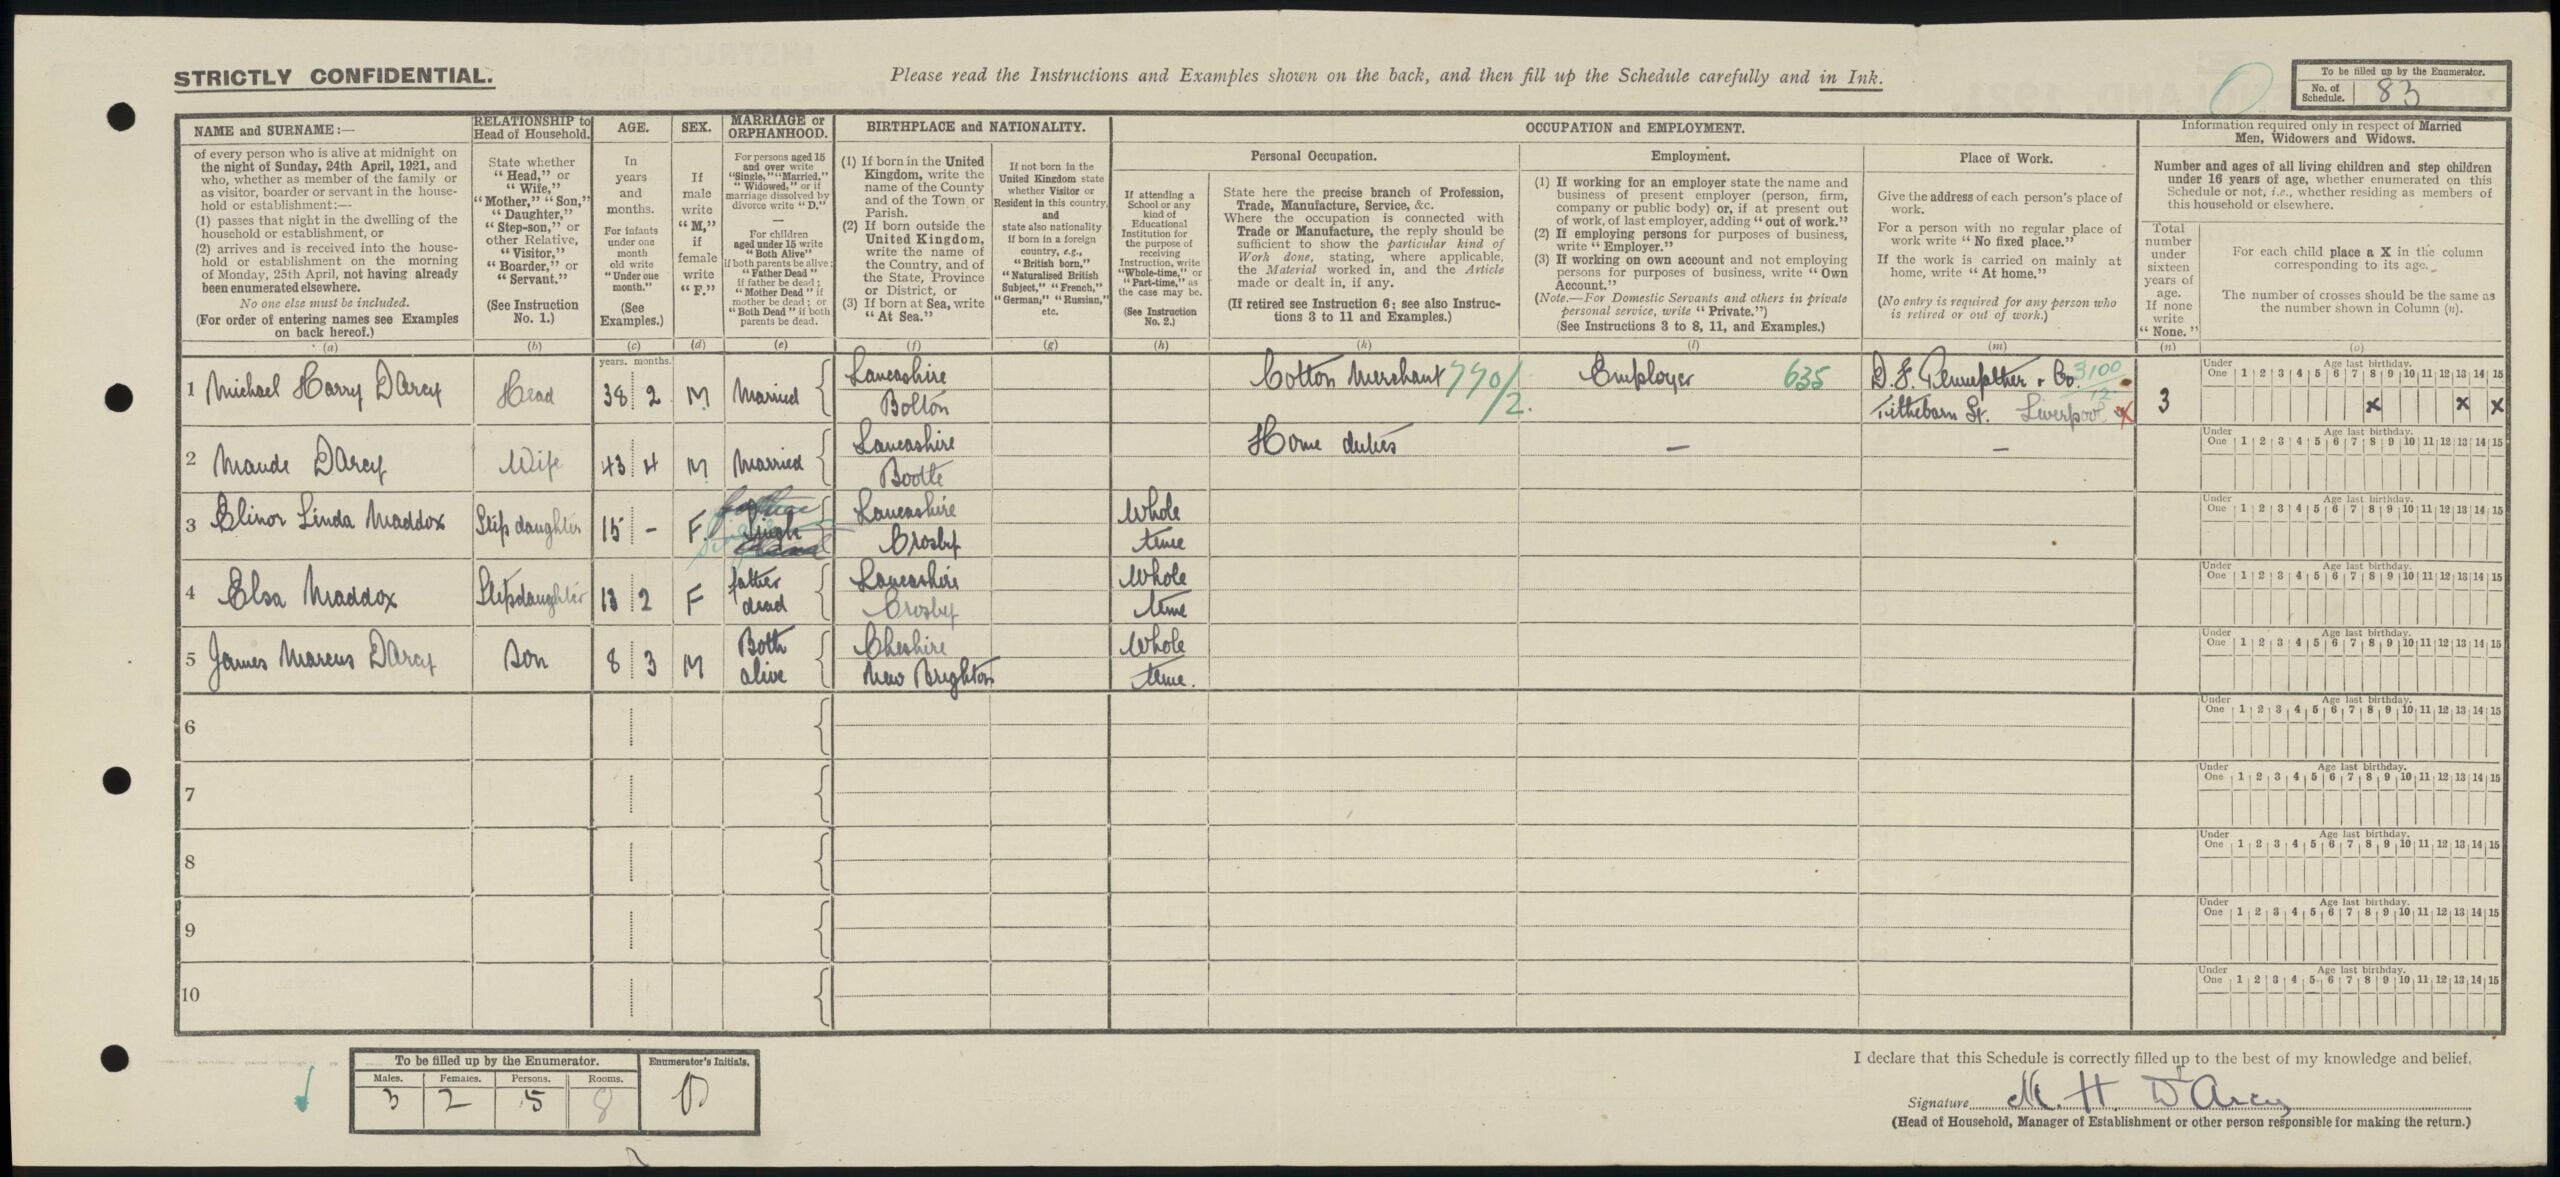 STRICTLY CONFIDENTIAL.
Please read the Instructions and Examples shown on the back, and then fill up the Schedule carefully and in Ink.
To be filled up by the Enumerator.
No. of Schedule. 83
NAME and SURNAME:—
of every person who is alive at midnight on
the night of Sunday, 24th April, 1921, and
who, whether as member of the family or
as visitor, boarder or servant in the house-
hold or establishment:—
(1) passes that night in the dwelling of the
household or establishment, or
(2) arrives and is received into the house-
hold or establishment on the morning
of Monday, 25th April, not having already
been enumerated elsewhere.
No one else must be included.
(For order of entering names see Examples
on back hereof.)
(a)
RELATIONSHIP to
Head of Household.
State whether
"Head," or
"Wife,"
"Mother," "Son,"
"Daughter,"
"Step-son," or
other Relative,
"Visitor,"
"Boarder," or
"Servant."
(See Instruction
No. 1.)
(b)
AGE.
In
years
and
months.
For infants
under one
month
old write
"Under one
month."
(See
Examples.)
(c)
SEX.
If
male
write
"M,"
if
female
write
"F."
(d)
MARRIAGE or
ORPHANHOOD.
For persons aged 15
and over write
"Single," "Married,"
"Widowed," or if
marriage dissolved by
divorce write "D."
For children
aged under 15 write
"Both Alive"
if both parents be alive;
"Father Dead"
if father be dead;
"Mother Dead" if
mother be dead; or
"Both Dead" if both
parents be dead.
(e)
BIRTHPLACE and NATIONALITY.
(1) If born in the United
Kingdom, write the
name of the County
and of the Town or
Parish.
(2) If born outside the
United Kingdom,
write the name of
the Country, and of
the State, Province
or District, or
(3) If born at Sea, write
"At Sea."
(f)
If not born in the
United Kingdom state
whether Visitor or
Resident in this country,
and
state also nationality
if born in a foreign
country, e.g.,
"British born,"
"Naturalised British
Subject," "French,"
"German," "Russian,"
etc.
(g)
OCCUPATION and EMPLOYMENT.
If attending a
School or any
kind of
Educational
Institution for
the purpose of
receiving
Instruction, write
"Whole-time," or
"Part-time," as
the case may be.
(See Instruction
No. 2.)
(h)
Personal Occupation.
State here the precise branch of Profession,
Trade, Manufacture, Service, &c.
Where the occupation is connected with
Trade or Manufacture, the reply should be
sufficient to show the particular kind of
Work done, stating, where applicable,
the Material worked in, and the Article
made or dealt in, if any.
(If retired see Instruction 6; see also Instruc-
tions 3 to 11 and Examples.)
(k)
Employment.
(1) If working for an employer state the name and
business of present employer (person, firm,
company or public body) or, if at present out
of work, of last employer, adding "out of work."
(2) If employing persons for purposes of business,
write "Employer."
(3) If working on own account and not employing
persons for purposes of business, write "Own
Account."
(Note.—For Domestic Servants and others in private
personal service, write "Private.")
(See Instructions 3 to 8, 11, and Examples.)
(l)
Place of Work.
Give the address of each person's place of
work.
For a person with no regular place of
work write "No fixed place."
If the work is carried on mainly at
home, write "At home."
(No entry is required for any person who
is retired or out of work.)
(m)
Information required only in respect of Married
Men, Widowers and Widows.
Number and ages of all living children and step children
under 16 years of age, whether enumerated on this
Schedule or not, i.e., whether residing as members of
this household or elsewhere.
Total
number
under
sixteen
years of
age.
If none
write
"None."
(n)
For each child place a X in the column
corresponding to its age.
The number of crosses should be the same as
the number shown in Column (n).
(o)
years. months.
Under One Age last birthday. 1 2 3 4 5 6 7 8 9 10 11 12 13 14 15
1 Michael Harry D'Arcy Head 38 2 M Married Lancashire Bolton Cotton Merchant 770/2 Employer 635 3100/12 Tithebarn St. Liverpool 3 x x x
2 Maude D'Arcy Wife 43 4 M Married Lancashire Bootle Home duties — —
Under One Age last birthday. 1 2 3 4 5 6 7 8 9 10 11 12 13 14 15
3 Elinor Linda Maddox Step daughter 15 - F. Single Lancashire Crosby Whole time
Under One Age last birthday. 1 2 3 4 5 6 7 8 9 10 11 12 13 14 15
4 Elsa Maddox Stepdaughter 13 2 F father dead Lancashire Crosby Whole time
Under One Age last birthday. 1 2 3 4 5 6 7 8 9 10 11 12 13 14 15
5 James Marcus D'Arcy Son 8 3 M Both alive Cheshire New Brighton Whole time.
Under One Age last birthday. 1 2 3 4 5 6 7 8 9 10 11 12 13 14 15
6
Under One Age last birthday. 1 2 3 4 5 6 7 8 9 10 11 12 13 14 15
7
Under One Age last birthday. 1 2 3 4 5 6 7 8 9 10 11 12 13 14 15
8
Under One Age last birthday. 1 2 3 4 5 6 7 8 9 10 11 12 13 14 15
9
Under One Age last birthday. 1 2 3 4 5 6 7 8 9 10 11 12 13 14 15
10
Under One Age last birthday. 1 2 3 4 5 6 7 8 9 10 11 12 13 14 15
To be filled up by the Enumerator.
Males. Females. Persons. Rooms.
3 2 5 8
Enumerator's Initials.
I declare that this Schedule is correctly filled up to the best of my knowledge and belief.
Signature M. H. D'Arcy
(Head of Household, Manager of Establishment or other person responsible for making the return.)